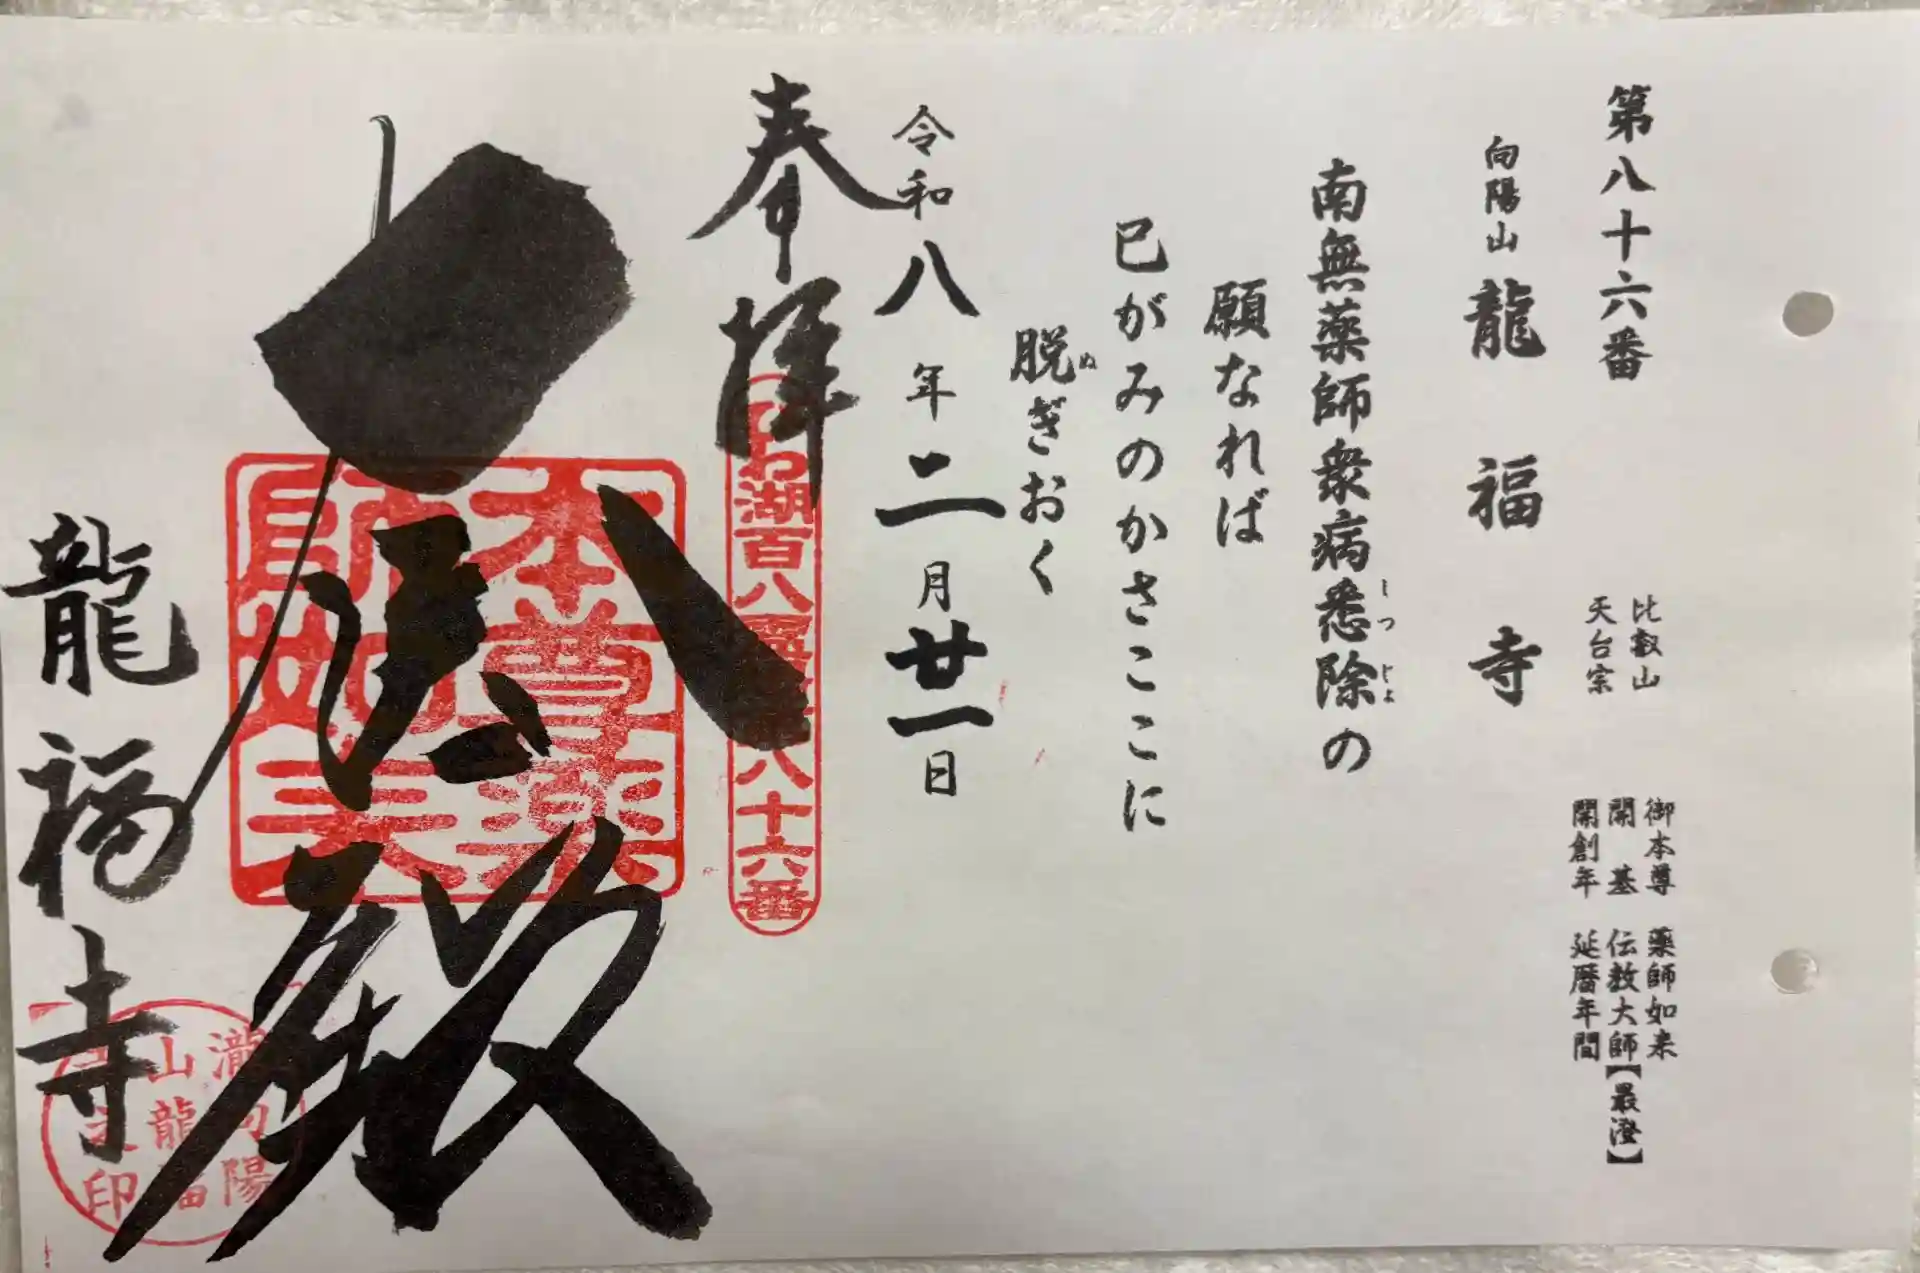 第八十六番
向陽山 龍福寺
比叡山
天台宗
御本尊 薬師如来
開基 伝教大師【最澄】
開創年 延暦年間
南無薬師衆病悉除の
しつ じよ
願なれば
已がみのかさここに
脱ぎおく
ぬ
令和八年二月廿一日
奉拝
びわ湖百八霊場八十六番
本尊薬師如来
龍福寺